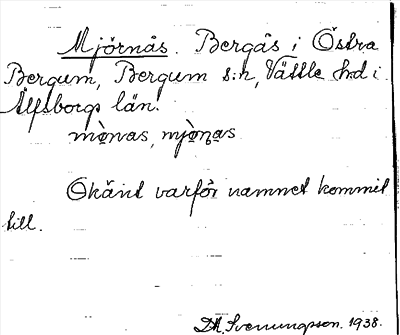 Mjörnås. Bergås i Östra
Bergum, Bergum s:n, Vättle hd i
Älfsborgs län.
okänt varför namnet kommit
till.
Svenungsson. 1938.